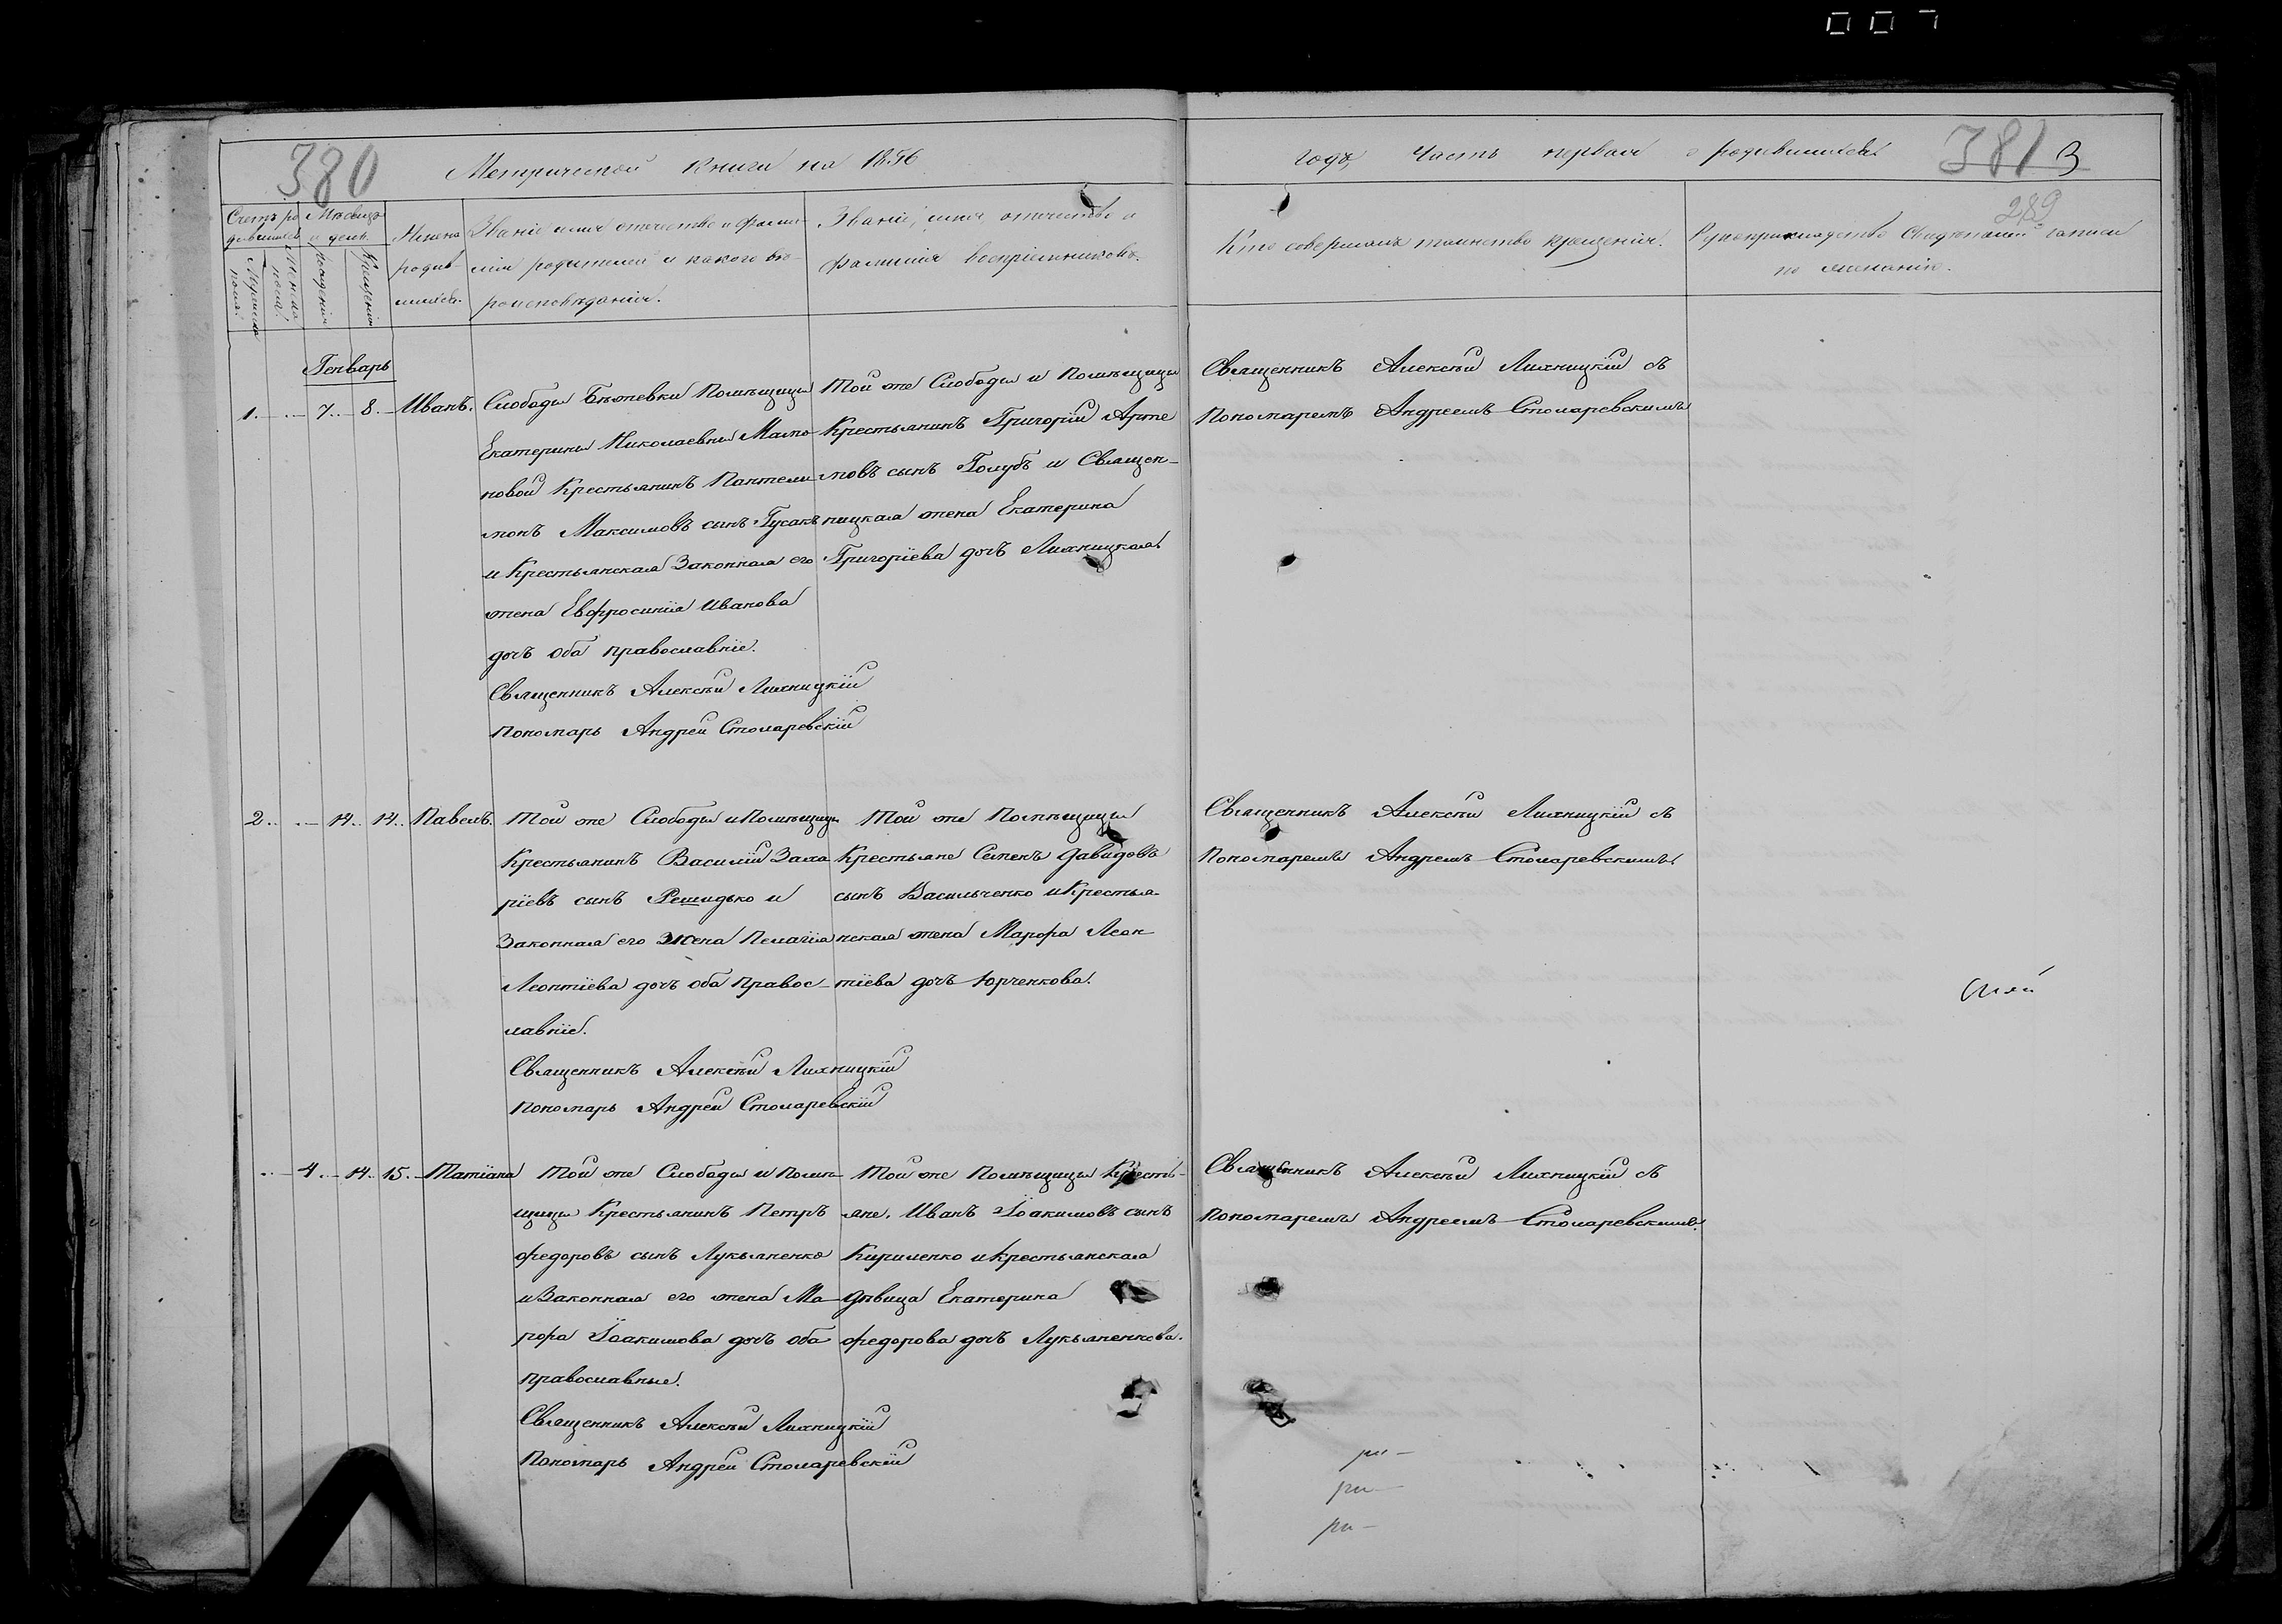 007
380
Метрической Книги на 1856
годъ, Часть первая о родившихся.
381 3
289
Счетъ ро
дившихся
Мужеска
пола.
Женска
пола.
Мѣсяцъ
и день.
рожденія
Крещенія
Имена
родив-
шихся.
Званіе имя отчество и фами-
лія родителей и какого вѣ-
роисповѣданія.
Званіе, имя отчество и
фамилія воспріемниковъ.
Кто совершалъ таинство крещенія.
Рукоприкладство Свидѣтелей записи
по желанію.
Генварь
1. 7. 8. Иванъ.
Слободы Бѣжевки Помѣщицы
Екатерины Николаевны
новой Крестьянинъ Пантели
монъ Максимовъ сынъ Гусакъ
и Крестьянская Законная его
жена Евфросинія Иванова
дочь оба православніе.
Священникъ Алексѣй Лихницкій
Пономарь Андрей Столяревскій
Той же Слободы и Помѣщицы
Крестьянинъ Григорій Арте
мовъ сынъ Голубъ и Священ-
ницкая жена Екатерина
Григоріева дочь Лихницкая.
Священникъ Алексѣй Лихницкій съ
Пономаремъ Андреемъ Столяревскимъ
2. 14. 14. Павелъ.
Той же Слободы и Помѣщицы
Крестьянинъ Василій Заха
ріевъ сынъ Решидько и
Законная его жена Пелагія
Леонтіева дочь оба Правос-
лавніе.
Священникъ Алексѣй Лихницкій
Пономарь Андрей Столяревскій
Той же Помѣщицы
Крестьяне Семенъ Давидовъ
сынъ Васильченко и Крестья-
нская жена Марфа Леон
тіева дочь Юрченкова.
Священникъ Алексѣй Лихницкій съ
Пономаремъ Андремъ Столяревскимъ
4. 14. 15. Татіана
Той же Слободы и Помѣ-
щицы Крестьянинъ Петръ
Федоровъ сынъ Лукьяненко
и Законная его жена Ма-
рфа Іоакимова дочь оба
православные.
Священникъ Алексѣй Лихницкій
Пономарь Андрей Столяревскій
Той же Помѣщицы Кресть-
яне. Иванъ Іоакимовъ сынъ
Кириленко и крестьянская
Дѣвица Екатерина
Федорова дочь Лукьяненкова.
Священникъ Алексѣй Лихницкій съ
Пономаремъ Андреемъ Столяревскимъ.
ри-
ри-
ри-